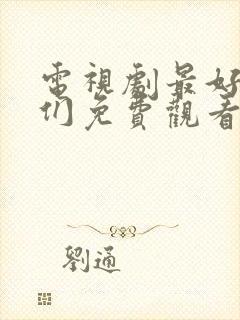 電視劇最好
们免費觀看
劉通